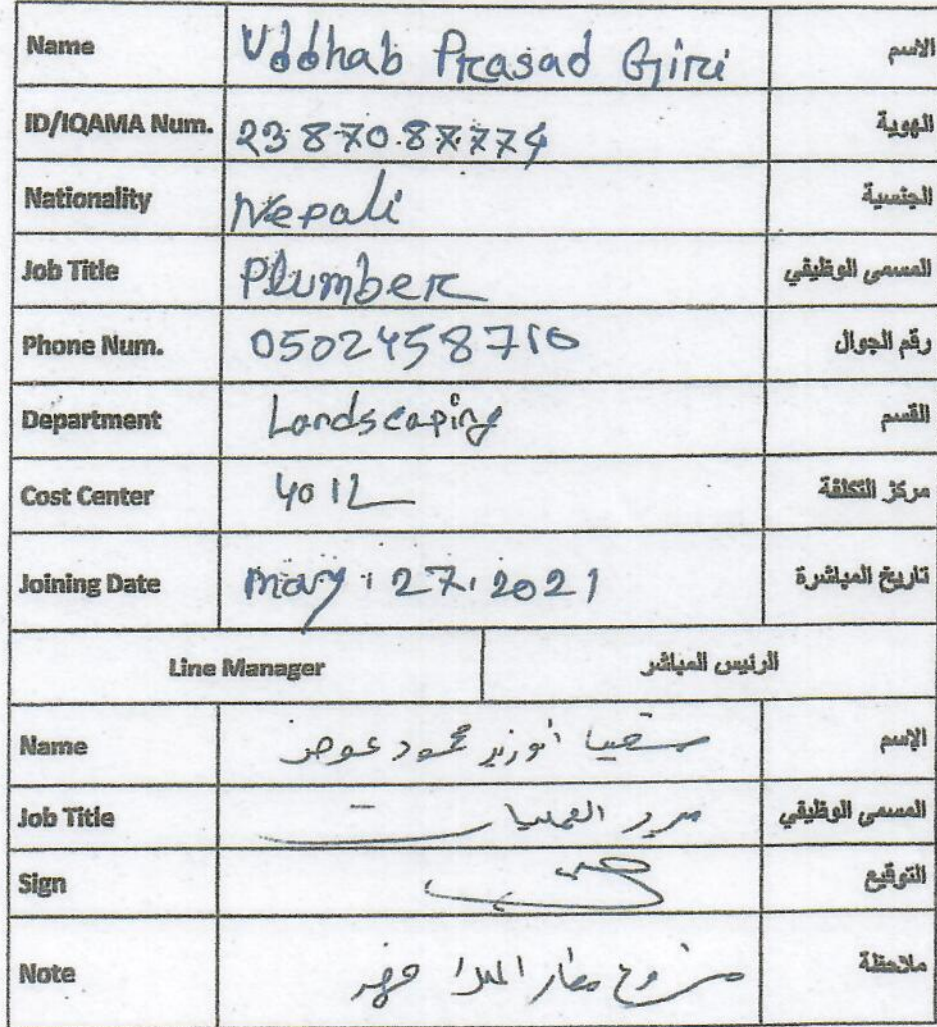 Name Uddhab Prasad Giri الاسم
ID/IQAMA Num. 2387087774 الهوية
Nationality Nepali الجنسية
Job Title Plumber المسمى الوظيفي
Phone Num. 0502458710 رقم الجوال
Department Landscaping القسم
Cost Center 4012 مركز التكلفة
Joining Date may 27. 2021 تاريخ المباشرة
Line Manager الرئيس المباشر
Name أبوزيد محمود عوض الإسم
Job Title مدير العمليات المسمى الوظيفي
Sign التوقيع
Note مطار الملك ملاحظة